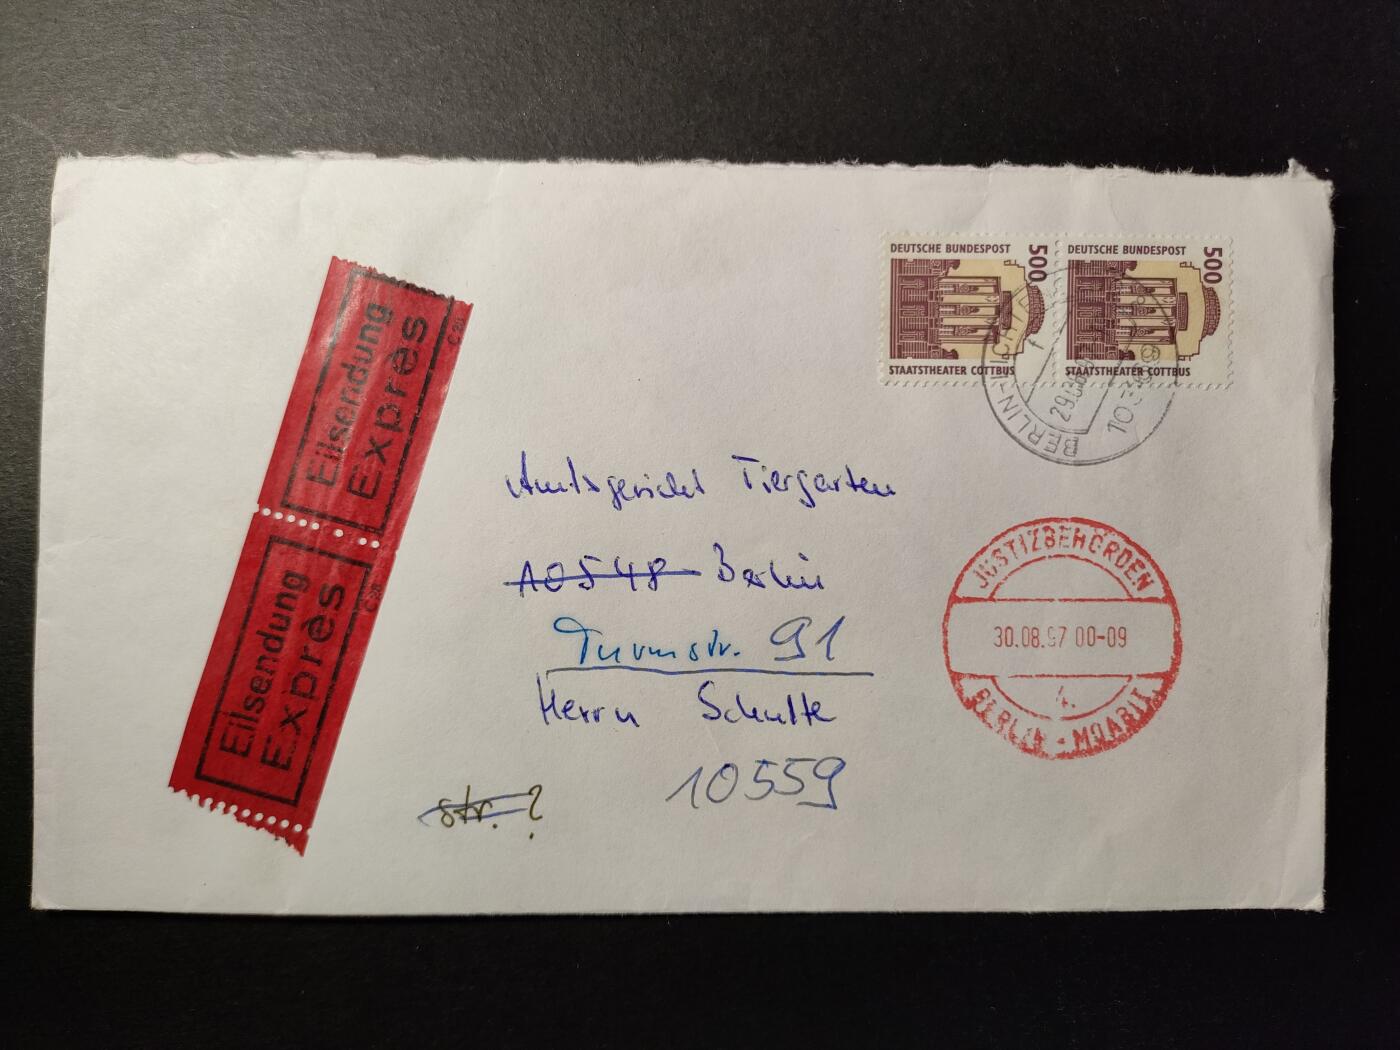 DEUTSCHE BUNDESPOST 500
STAATSTHEATER COTTBUS
DEUTSCHE BUNDESPOST 500
STAATSTHEATER COTTBUS
29.08
Eilsendung
Exprès
C 20
Eilsendung
Exprès
C 20
Amtsgericht Tiergarten
10548 Berlin
Turmstr. 91
Herrn Schulte
10559
str. ?
JUSTIZBEHÖRDEN
30.08.97 00-09
4.
BERLIN - MOABIT